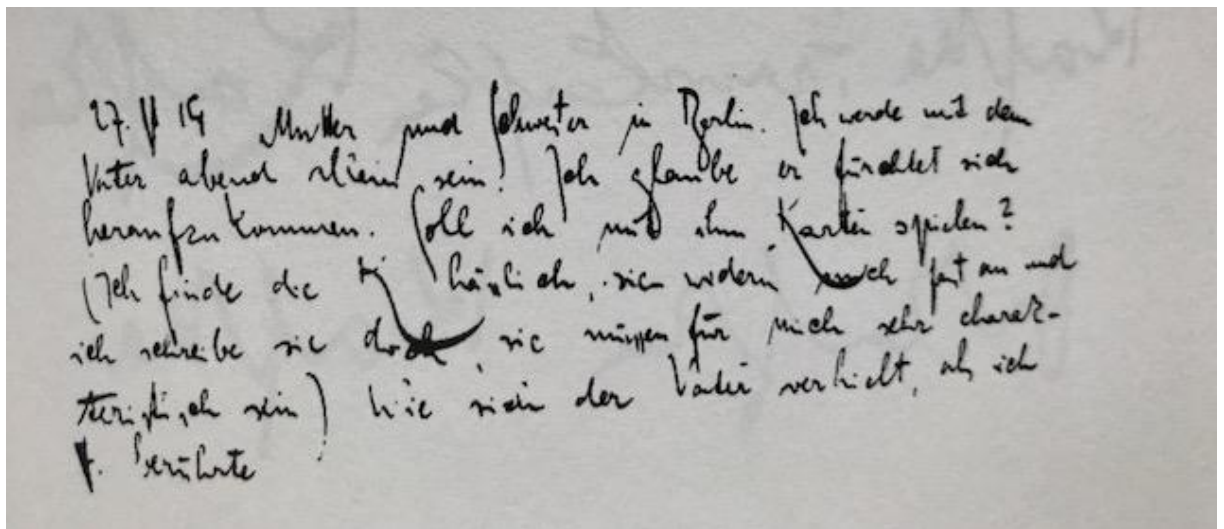 27. V 14 Mutter und Schwester in Berlin. Ich werde mit dem
Vater abend allein sein. Ich glaube er fürchtet sich
heraufzukommen. Soll ich mit ihm Karten spielen?
(Ich finde die K häßlich, sie widern mich fast an und
ich schreibe sie doch, sie müssen für mich sehr charak-
teristisch sein) Wie sich der Vater verhielt, als ich
F. berührte